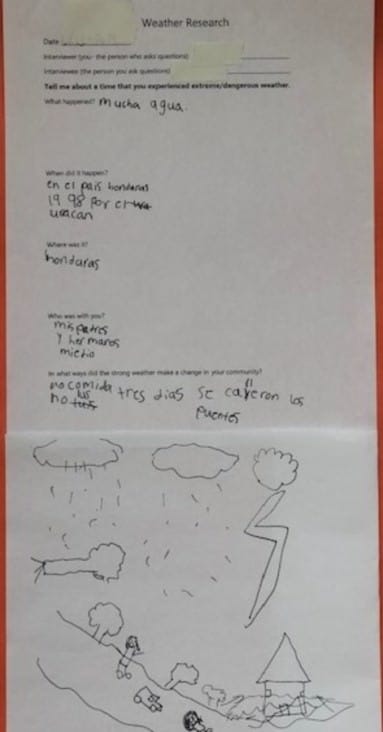 Weather Research
Date
Interviewer (you- the person who asks questions)
Interviewee (the person you ask questions)
Tell me about a time that you experienced extreme/dangerous weather.
What happened? mucha agua.
When did it happen?
en el pais honduras
1998 por el
uracan
Where was it?
honduras
Who was with you?
mis patres
y hermanos
mi tio
In what ways did the strong weather make a change in your community?
no comida tres dias se calleron los
no lus puentes